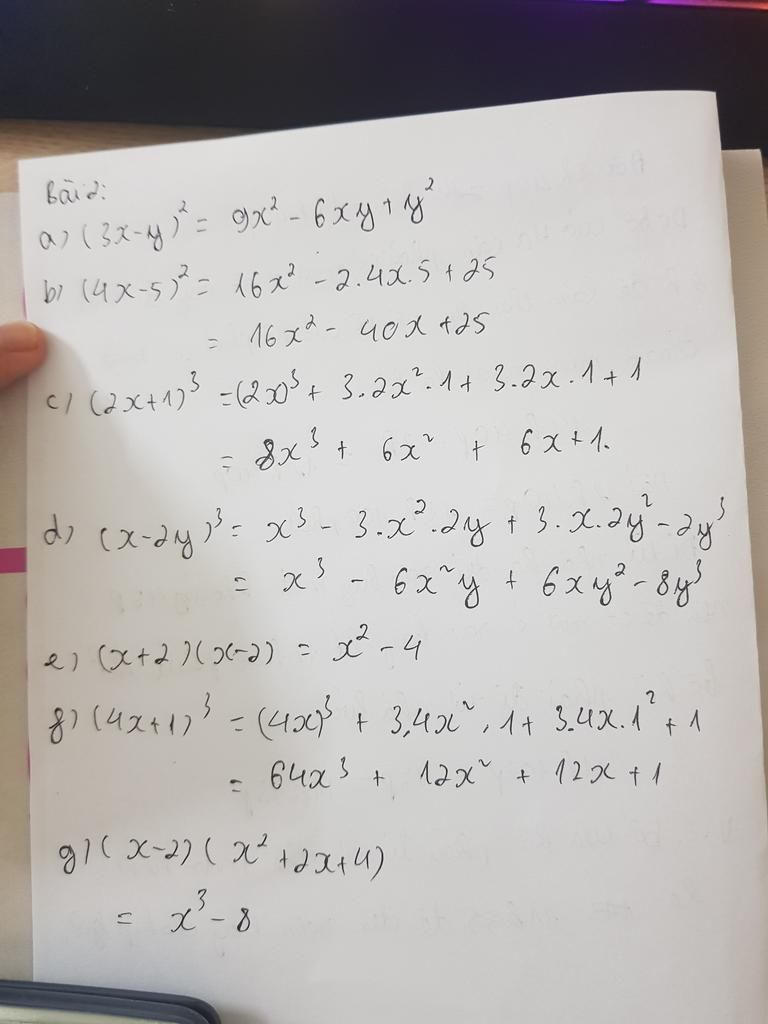 Bài 2:
a) (3x-y)² = 9x² - 6xy + y²
b) (4x-5)² = 16x² - 2.4x.5 + 25
= 16x² - 40x + 25
c) (2x+1)³ = (2x)³ + 3.2x².1 + 3.2x.1 + 1
= 8x³ + 6x² + 6x + 1.
d) (x-2y)³ = x³ - 3.x².2y + 3.x.2y² - 2y³
= x³ - 6x²y + 6xy² - 8y³
e) (x+2)(x-2) = x² - 4
f) (4x+1)³ = (4x)³ + 3.4x².1 + 3.4x.1² + 1
= 64x³ + 12x² + 12x + 1
g) (x-2)(x²+2x+4)
= x³ - 8